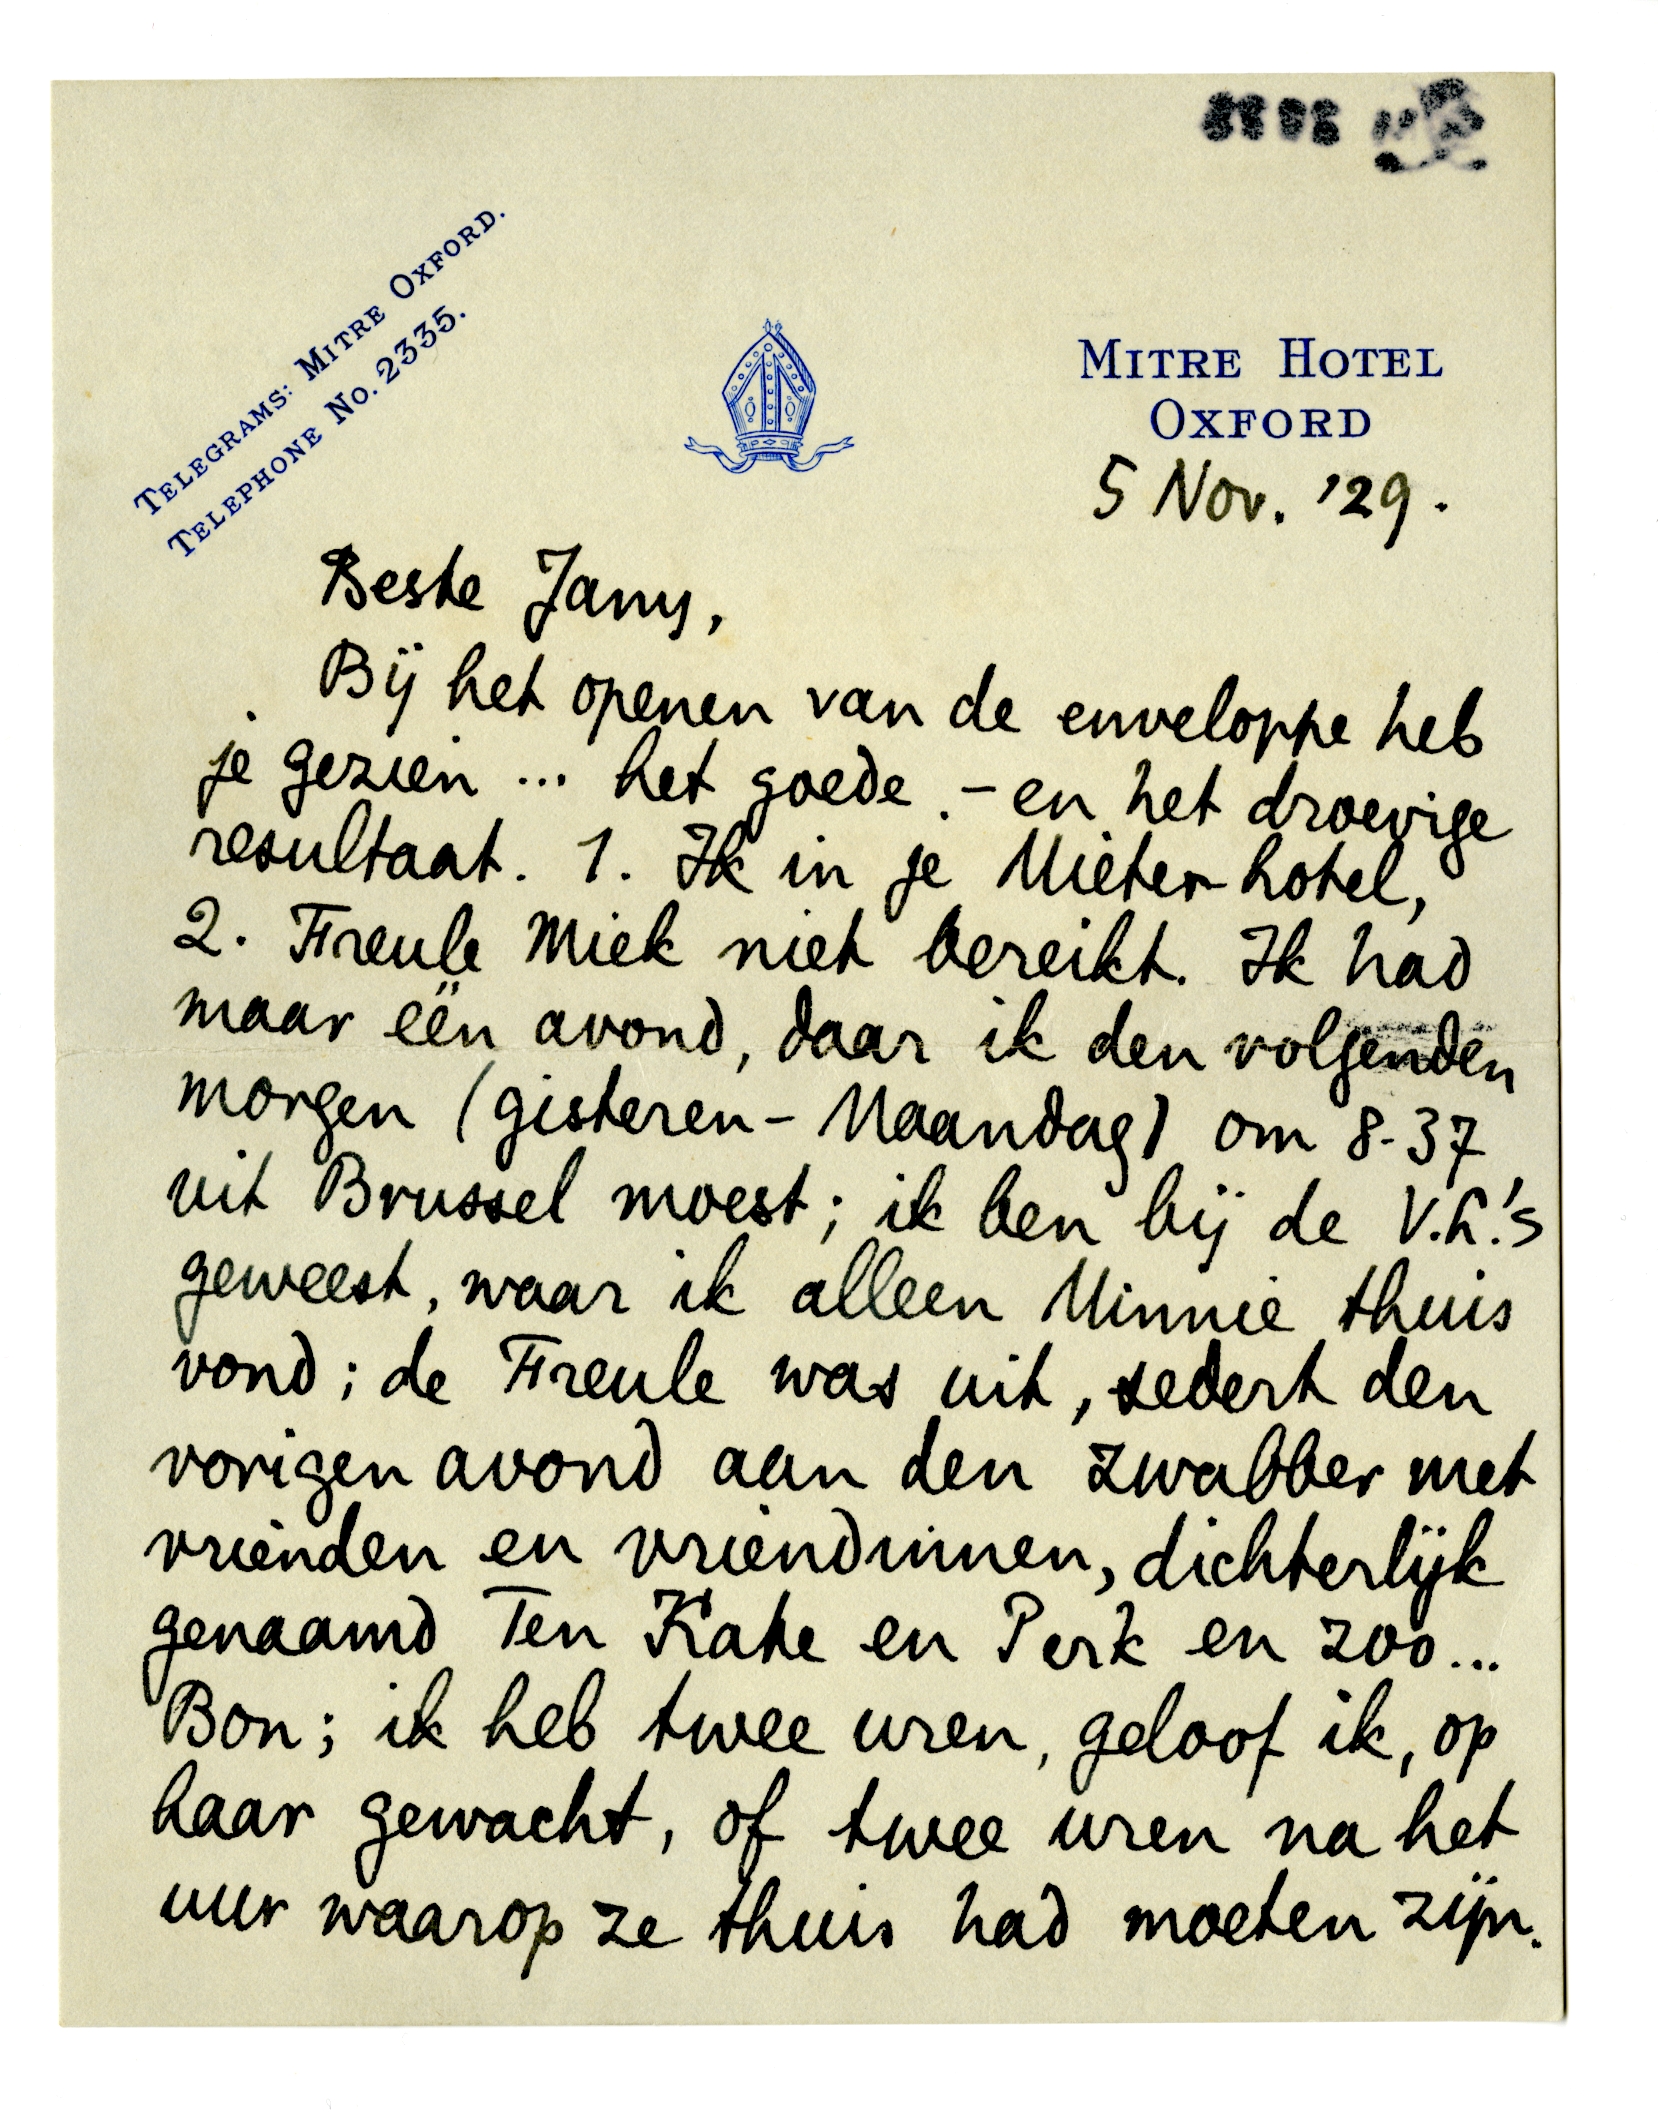 TELEGRAMS: MITRE OXFORD.
TELEPHONE No. 2335.
MITRE HOTEL
OXFORD
5 Nov. '29.
Beste Jany,
Bij het openen van de enveloppe heb
je gezien ... het goede - en het droevige
resultaat. 1. Ik in je Mieter-hotel,
2. Freule Miek niet bereikt. Ik had
maar ëën avond, daar ik den volgenden
morgen (gisteren - Maandag) om 8-37
uit Brussel moest; ik ben bij de V.L.'s
geweest, waar ik alleen Minnie thuis
vond; de Freule was uit, sedert den
vorigen avond aan den zwabber met
vrienden en vriendinnen, dichterlijk
genaamd Ten Kate en Perk en zoo...
Bon; ik heb twee uren, geloof ik, op
haar gewacht, of twee uren na het
uur waarop ze thuis had moeten zijn.